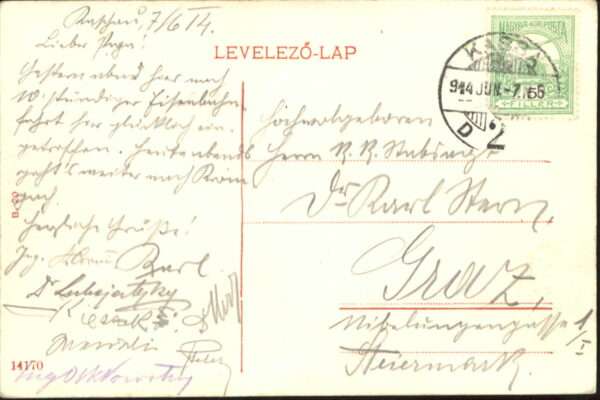 Kaschau, 7/6 14.
Lieber Papa!
Gestern abend hier nach
10 stündiger Eisenbahn-
fahrt hier glücklich ein-
getroffen. Heute abends
geht's weiter nach
Herzliche Grüße!
Karl
LEVELEZŐ-LAP
MAGYAR KIR. POSTA
FILLER
KASSA
914 JUN. -7.
D 2
Hochwohlgeboren
Herrn K. K. Stabsarzt
Dr Karl Stern,
Graz,
Nibelungengasse 1/I
Steiermark.
14170